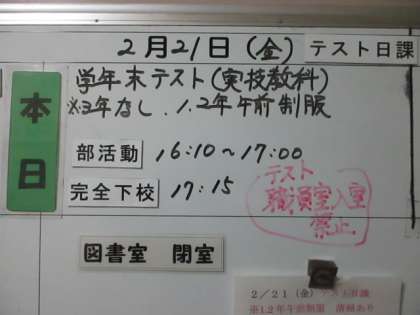 2月21日(金) テスト日課
本日
学年末テスト(実技教科)
※3年なし、1.2年午前制服
部活動 16:10~17:00
完全下校 17:15
テスト
職員室入室
禁止
図書室 閉室
2/21(金)テスト日課
※1.2年午前制服 清掃あり